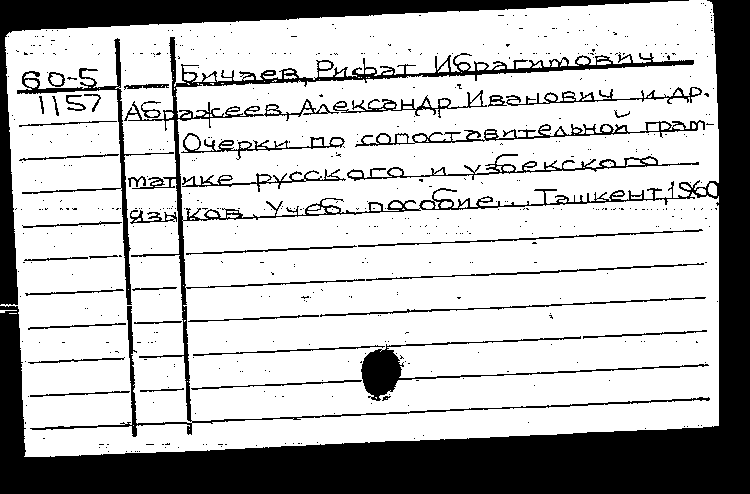 60-5 Бичаев, Рифат Ибрагимович.
1157 Абражеев, Александр Иванович и др.
Очерки по сопоставительной грам-
матике русского и узбекского
языков. Учеб. пособие. Ташкент, 1960